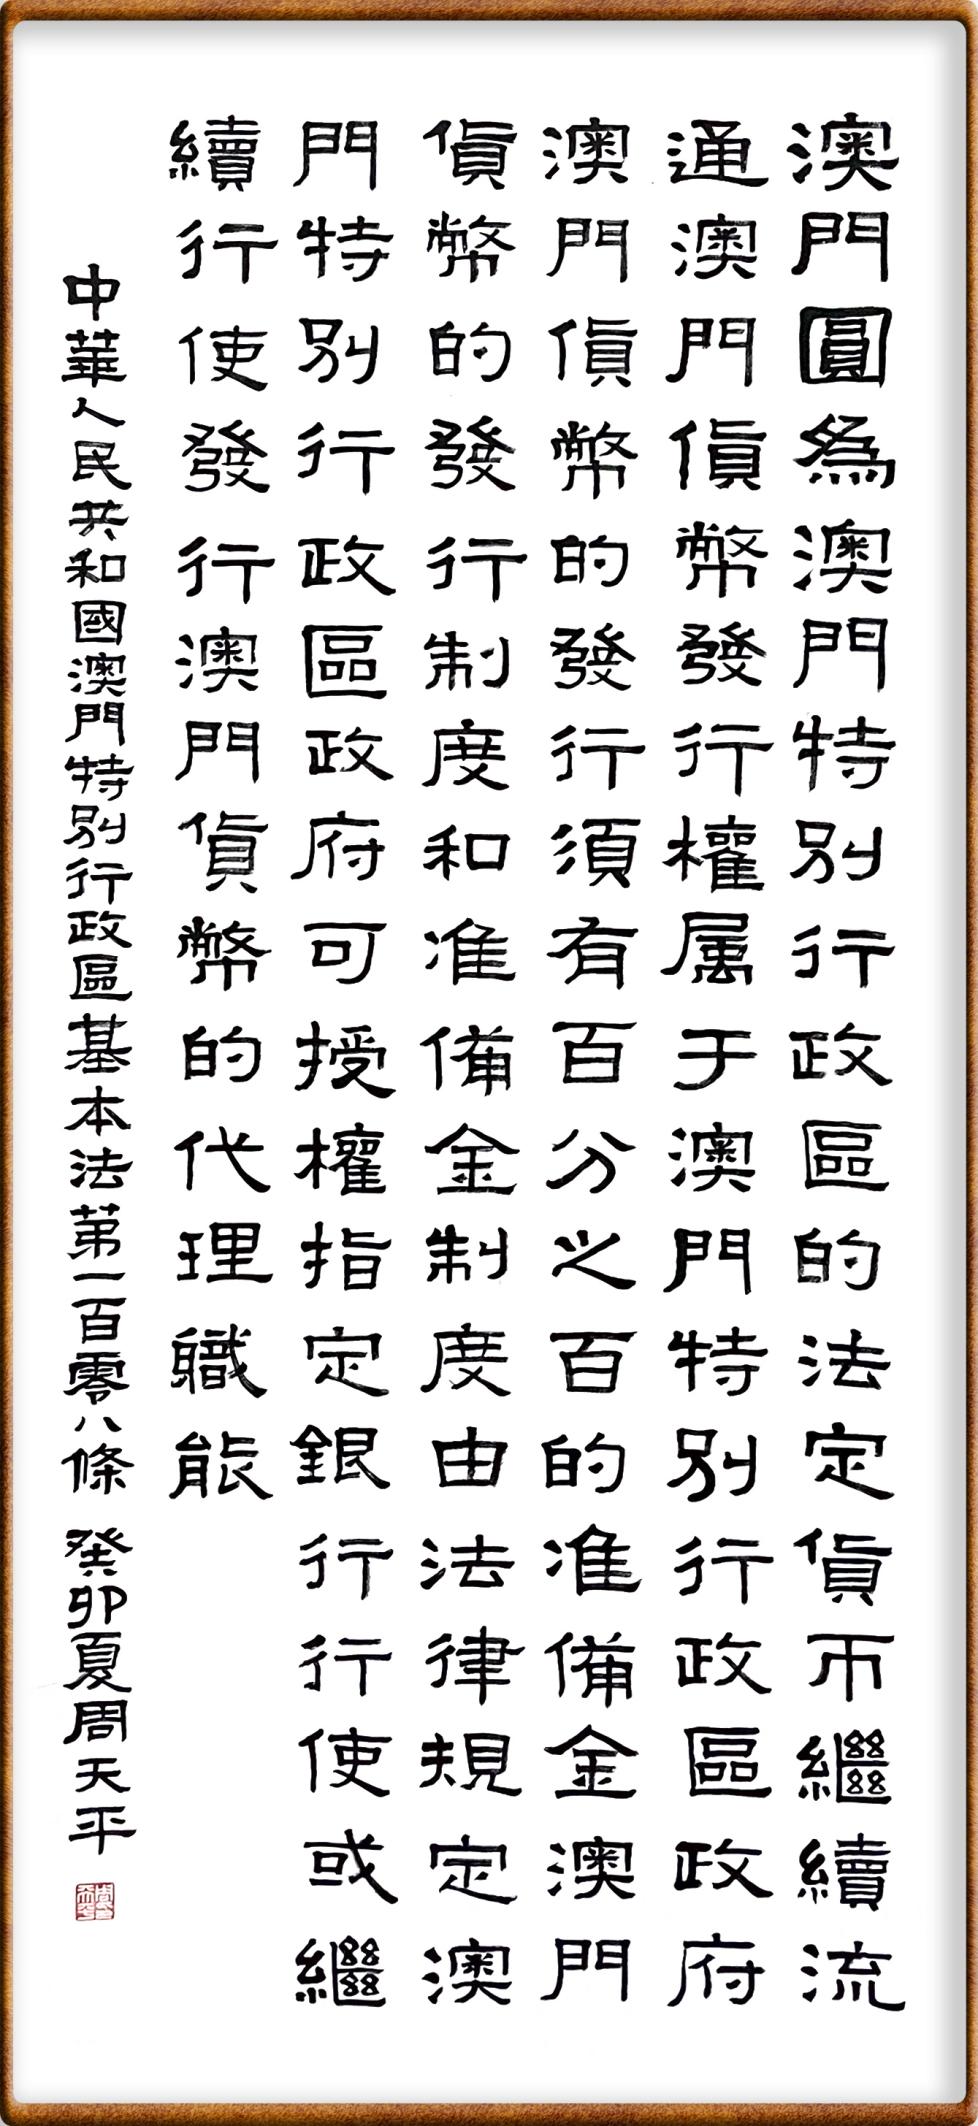 澳門圓為澳門特別行政區的法定貨币繼續流
通澳門貨幣發行權属于澳門特別行政區政府
澳門貨幣的發行須有百分之百的准備金澳門
貨幣的發行制度和准備金制度由法律規定澳
門特別行政區政府可授權指定銀行行使或繼
續行使發行澳門貨幣的代理職能
中華人民共和國澳門特別行政區基本法第一百零八條 癸卯夏周天平